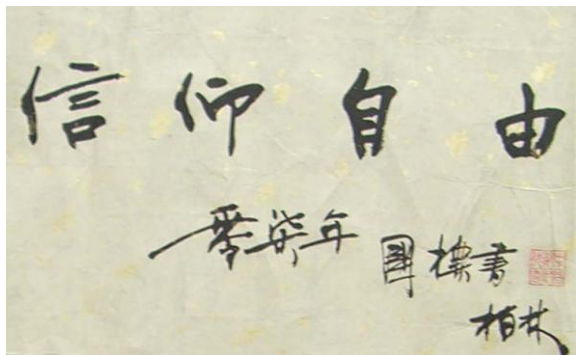 信仰自由
零柒年
國樑書
柏林